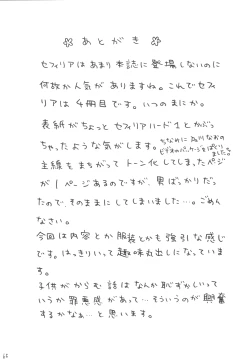 ☆ あとがき ☆
セフィリアはあまり本誌に登場しないのに
何故か人気がありますね。これでセフィ
リアは4冊目です。いつのまにか。
表紙がちょっとセフィリアハード1とかぶっ
ちゃったような気がします。
主線もまちがってトーン化してしまったページ
が1ページあるのですが、男ばっかりだっ
たので、そのままにしてしまいました…。ごめん
なさい。
今回は内容とか服装とかも強引な感じ
です。はっきりいって趣味丸出しになっていま
す。
子供がからむ話はなんか恥ずかしいって
いうか罪悪感があって…そういうのが興奮
するかなぁ…と思います。